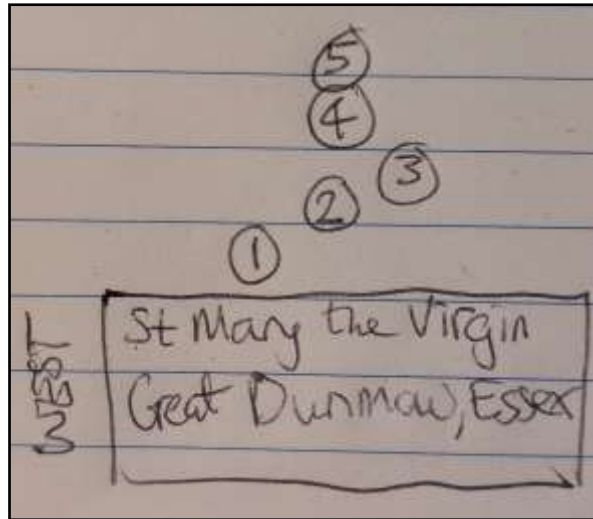 5
4
3
2
1
WEST
St Mary the Virgin
Great Dunmow, Essex